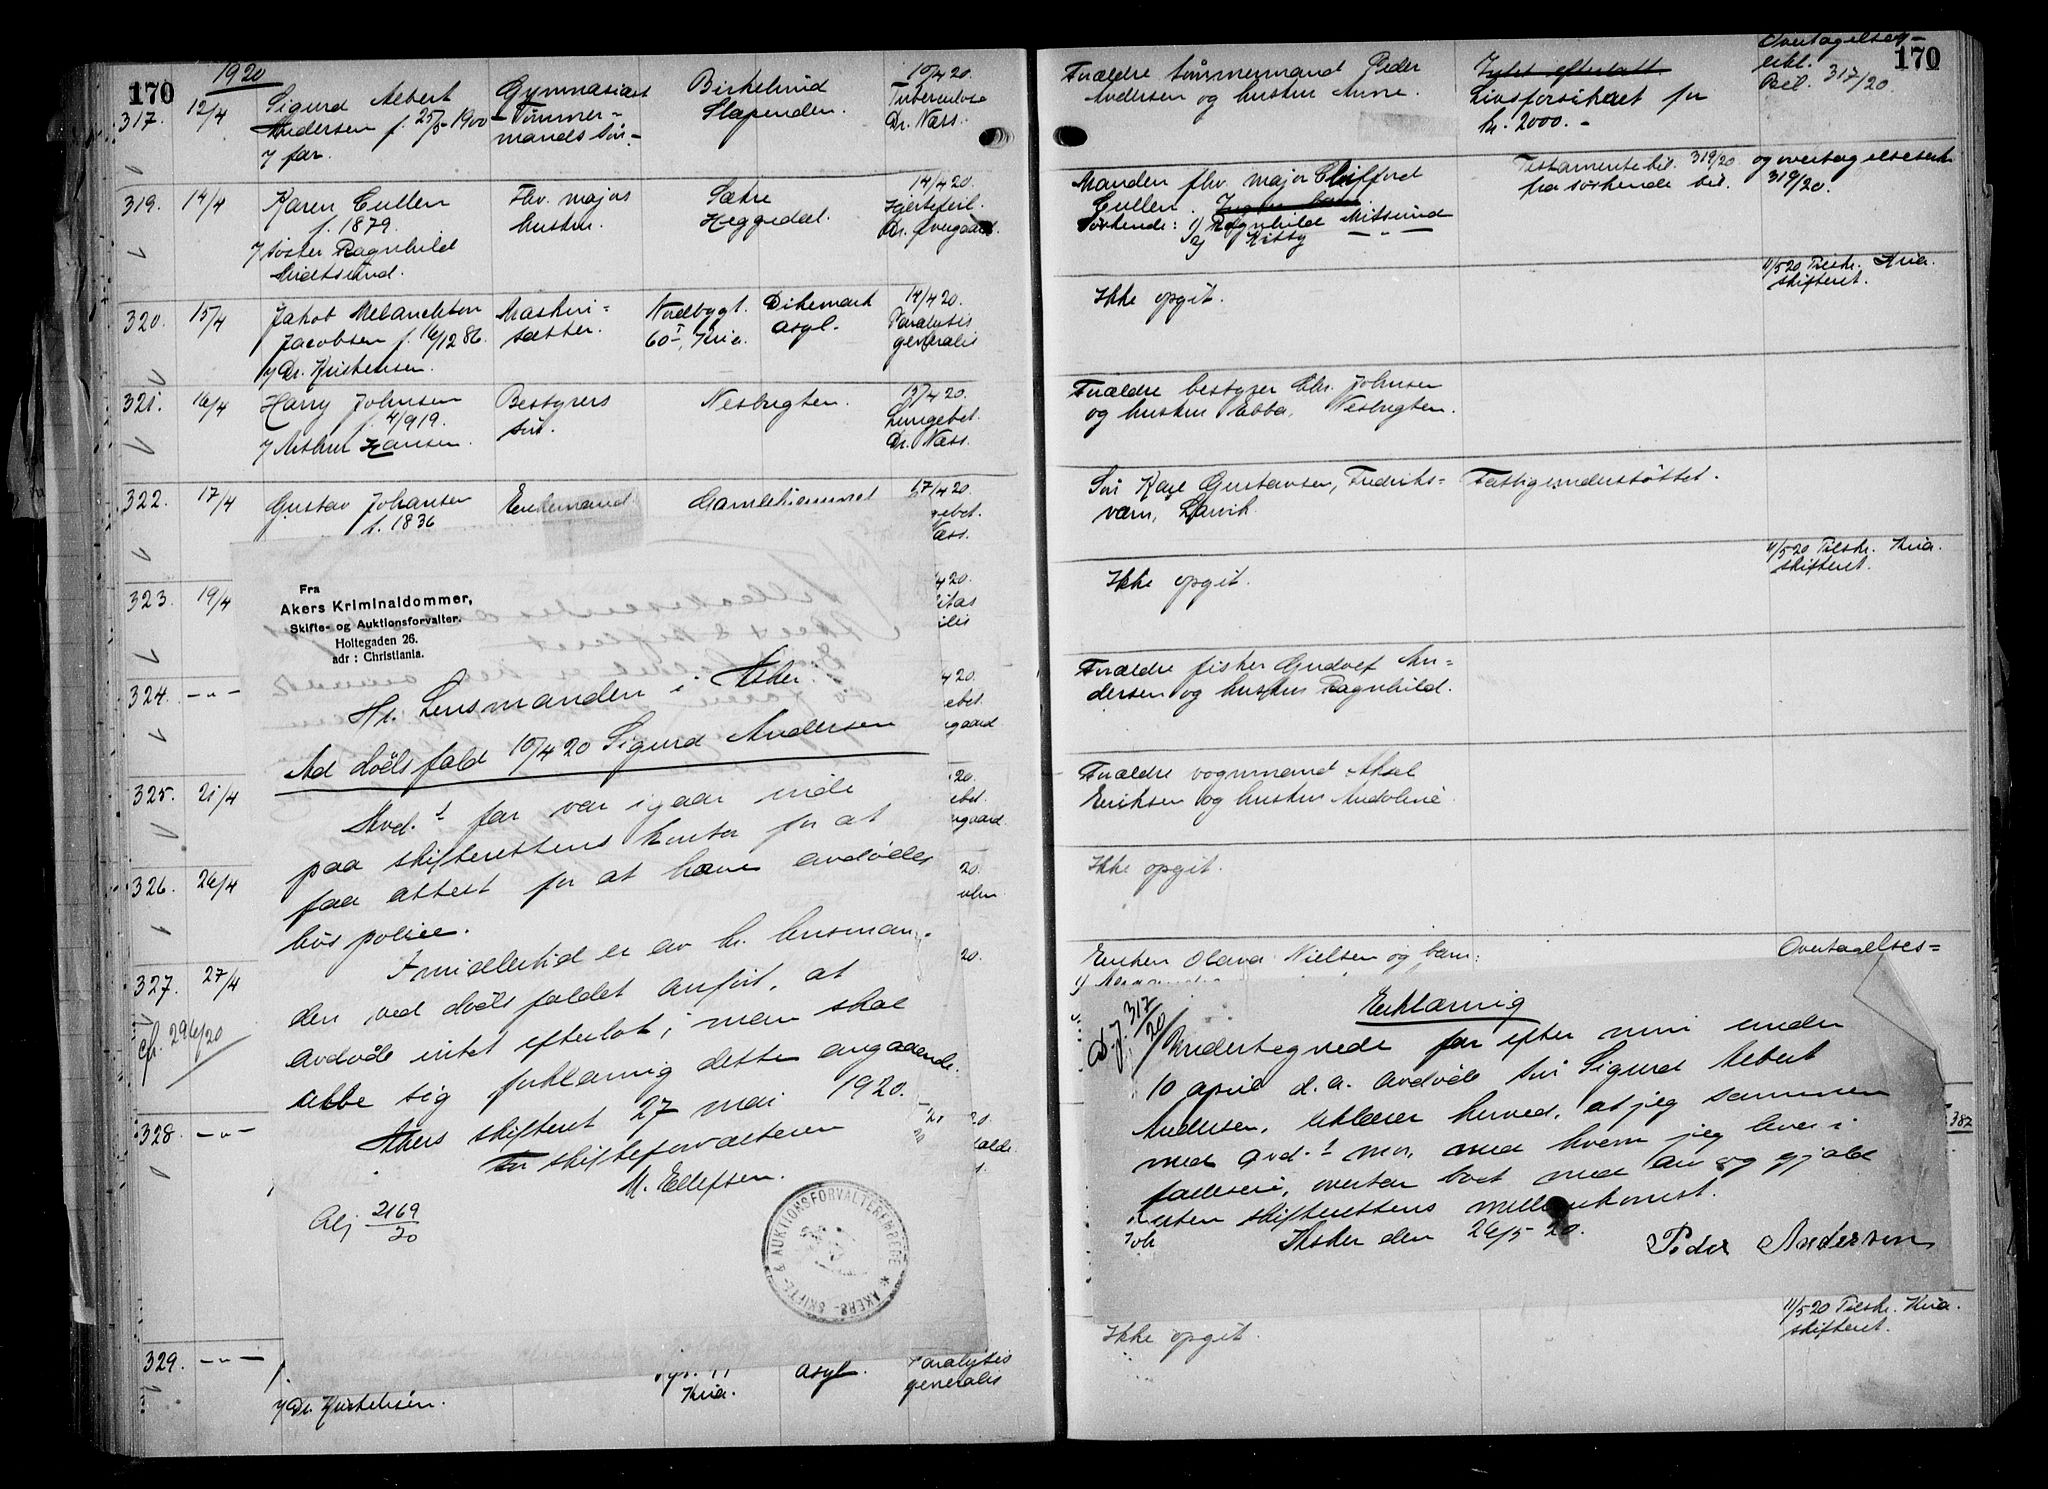 170
1920
317.
12/4
Sigurd Albert
Andersen f. 25/5-1900
v/ far.
Gymnasiast
Tømmer-
mands søn.
Birkelund
Slependen.
10/4 20.
Tuberculose
Dr. Næss.
319.
14/4
Karen Cullen
f. 1879.
v/ søster Ragnhild
Midtsund.
Fhv. majors
hustru.
Sætre
Heggedal.
14/4 20.
Hjertefeil.
Dr. Øvergaard
320.
15/4
Jakob Melanchton
Jacobsen f. 16/12 86.
v/ Dr. Kristensen.
Maskin-
sætter.
Nordbygt.
60 I, Kria.
Dikemark
asyl.
14/4 20.
Paralysis
generalis
321.
16/4
Harry Johnsen
f. 4/9 19.
v/ Arthur Hansen.
Bestyrers
søn.
Nesbugten.
15/4 20.
Lungebet.
Dr. Næss.
322.
17/4
Gustav Johansen
f. 1836
Enkemand.
Gamlehjemmet
17/4 20.
gebet.
Næss.
323.
19/4
324.
— " —
325.
21/4
326.
26/4
327.
27/4
cfr. 296/20
328.
— " —
329.
— " —
v/ Dr. Kristensen.
Kria.
asyl.
Paralysis
generalis
Fra
Akers Kriminaldommer,
Skifte- og Auktionsforvalter.
Holtegaden 26.
adr : Christiania.
Hr. Lensmanden i Asker.
Ad dødsfald 10/4 20 Sigurd Andersen
Avd.s far var igaar inde
paa skifterettens kontor for at
faa attest for at hæve avdødes
livspolice.
Imidlertid er av hr. lensman-
den ved dødsfaldet anført, at
avdøde intet efterlot; man skal
utbe sig forklaring dette angaaende.
Akers skifteret 27 mai 1920.
For skifteforvalteren
M. Ellefsen.
Obj 2169/20
AKERS SKIFTE- & AUKTIONSFORVALTEREMBEDE
170
Forældre tømmermand Peder
Andersen og hustru Anne.
Intet efterlatt
Livsforsikret for
kr. 2000.-
Overtagelses-
erkl.
Bil. 317/20.
Manden fhv. major Clifford
Cullen. Ingen barn
Søskende: 1) Ragnhild Midtsund
2) Kitty — " —
Testamente bil. 319/20 og overtagelseserk
fra søskende bil. 319/20.
Ikke opgit.
11/5 20 Tilskr. Kria.
skifteret.
Forældre bestyrer Chr. Johnsen
og hustru Ebba, Nesbugten.
Søn Kaye Gustavsen, Fredriks-
værn, Larvik
Fattigunderstøttet.
Ikke opgit.
11/5 20 Tilskr. Kria.
skifteret.
Forældre fisker Gudolf An-
dersen og hustru Ragnhild.
Forældre vognmand Aksel
Eriksen og hustru Andoline
Ikke opgit.
Enken Olava Nielsen og barn:
Overtagelses-
D.j. 317/20
Erklæring
Undertegnede far efter min under
10 april d.a. avdøde søn Sigurd Albert
Andersen, erklærer herved, at jeg sammen
med avd.s mor, med hvem jeg lever i
fælleseie, overtar boet med arv og gjæld
uten skifterettens mellemkomst.
Asker den 26/5 20.
Peder Andersen
382
Ikke opgit.
11/5 20 Tilskr. Kria.
skifteret.